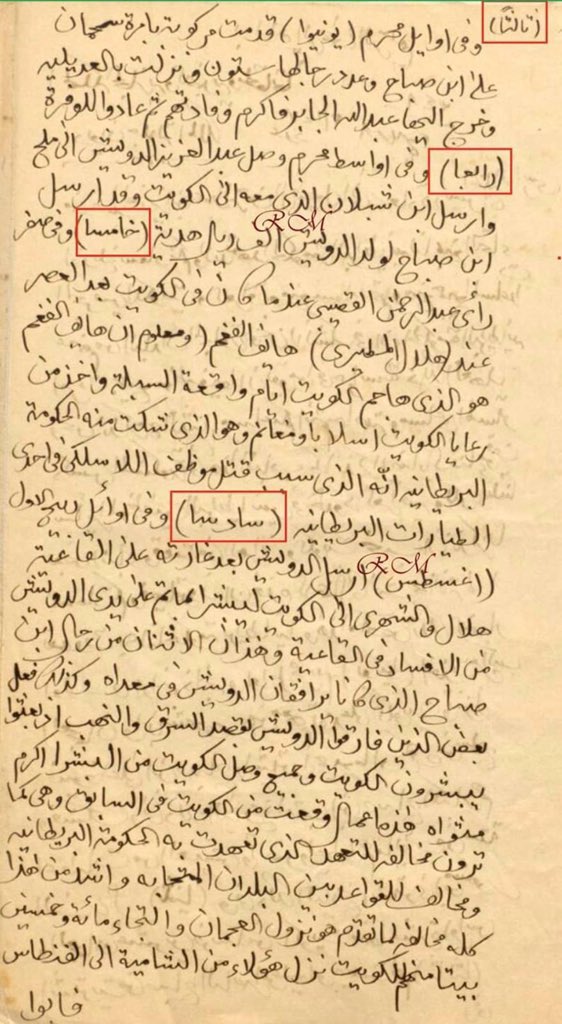 (ثالثا)
وفى اوايل محرم (يونيوا) قدمت مركوبة بامرة سمحان
على ابن صباح وعدد رجالها ستون ونزلت بالعديليه
وخرج اليها عبدالله الجابر فاكرم وفادتهم ثم عادوا للوفرة
(رابعا) وفى اواسط محرم وصل عبدالعزيز الدويش الى ملح
وارسل ابن شبلان الذى معه الى الكويت وقد ارسل
ابن صباح لولد الدويش الف ريال هدية (خامسا) وفى صفر
RM
رأى عبدالرحمن القصيبى عندما كان فى الكويت بعد العصر
عند (هلال المطيرى) هايف الفغم (ومعلوم ان هايف الفغم
هو الذى هاجم الكويت ايام واقعة السبلة واخذ من
رعايا الكويت اسلابا ومغانم وهو الذى شكت منه الحكومة
البريطانيه انه الذى سبب قتل موظف اللاسلكى فى احدى
الطيارات البريطانيه (سادسا) وفى اوائل ربيع الاول
(اغسطس) ارسل الدويش بعد غارته على القاعية
RM
هلال والشهرى الى الكويت ليبشرا بما تم على يدى الدويش
من الافساد فى القاعية وهذان الاثنان من رجال ابن
صباح الذى كانا يرافقان الدويش فى معداه وكذلك فعل
بعض الذين فارقوا الدويش بقصد السرق والنهب اذ بعثوا
يبشرون الكويت وجميع وصل الكويت من البشرا اكرم
مثواه هذه اعمال وقعت من الكويت فى السابق وهى كما
ترون مخالفه للتعهد الذى تعهدت به الحكومة البريطانيه
ومخالف للقواعد بين البلدان المتحابه واشد من هذا
كله مخالفه لما تقدم هو نزول العجمان والتجاء مائة وخمسين
بيتا منهم للكويت نزل هؤلاء من الشامية الى القنطاس
فابوا